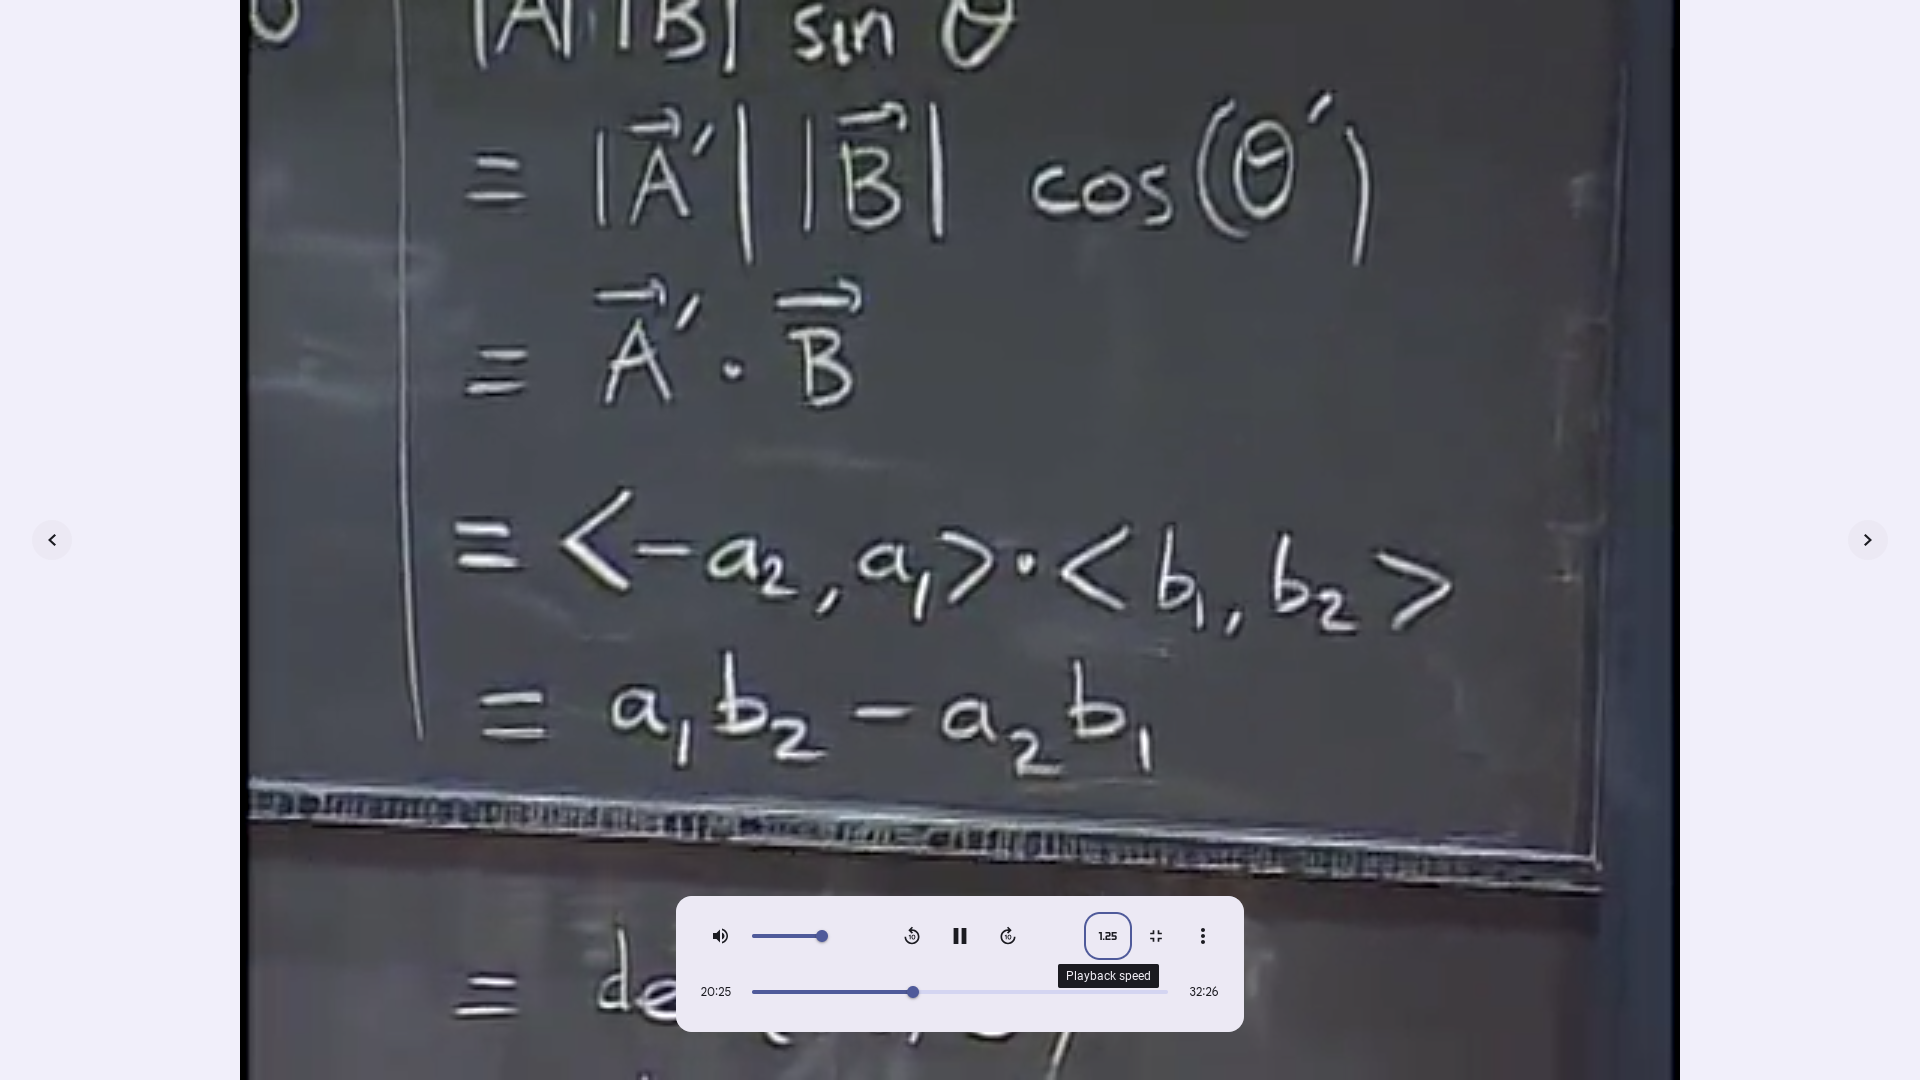 |A| |B| sin θ
= |A⃗′| |B⃗| cos(θ′)
= A⃗′ · B⃗
= <-a₂, a₁> · <b₁, b₂>
= a₁b₂ - a₂b₁
=
1.25
Playback speed
20:25
32:26